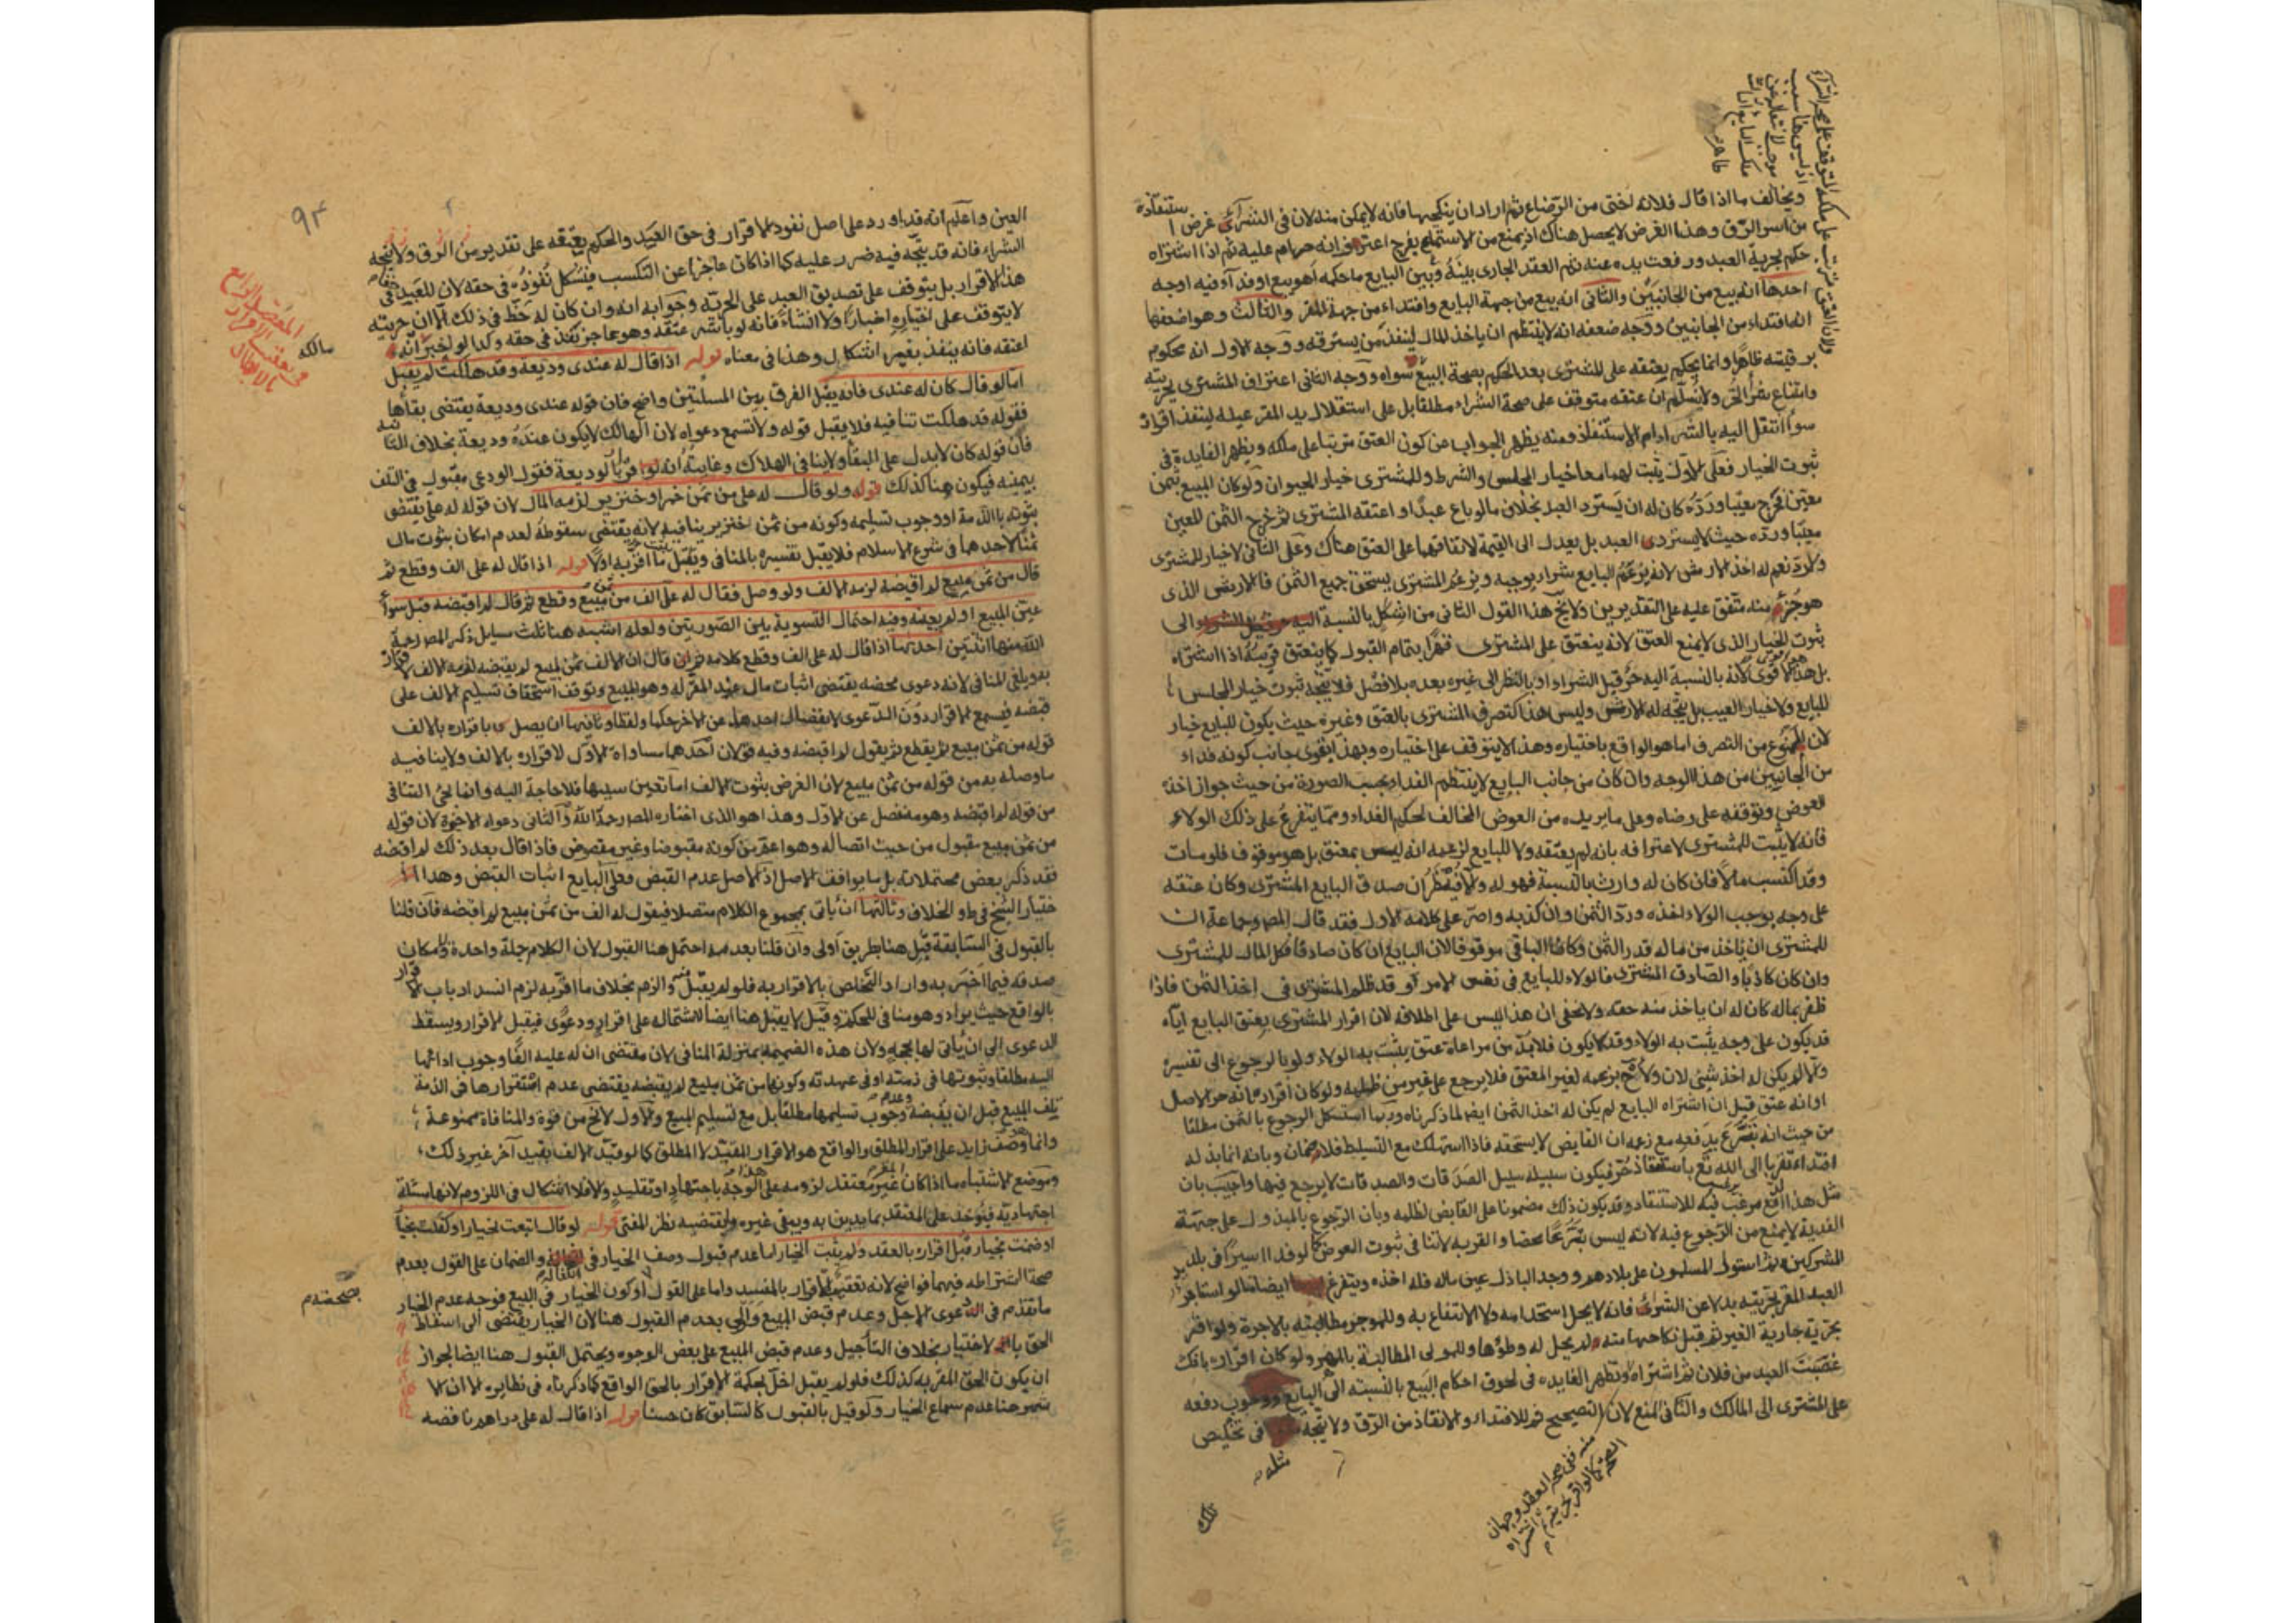 ويخالف ما اذا قال فلانة اختى من الرضاع ثم اراد ان ينكحها فانه لا يمكن منه لان فى الشراء غرض استنقاذه
من اسر الرق وهذا الغرض لا يحصل هناك اذ يمنع من الاستمتاع بفرج اعترف انه حرام عليه ثم اذا اشتراه
حكم بحرية العبد ورفعت يده عنه ثم العقد الجارى بينه وبين البايع ما حكمه اهو بيع او فداء فيه اوجه
احدها انه بيع من الجانبين والثانى انه بيع من جهة البايع وافتداء من جهة المقر والثالث وهو اضعفها
انه افتداء من الجانبين ووجه ضعفه انه لا ينتظم ان ياخذ المال لينقذ من يسترقه ووجه الاول انه محكوم
برقيته ظاهرا وانما يحكم بعتقه على المشترى بعد الحكم بصحة البيع سواه ووجه الثانى اعتراف المشترى بحريته
وامتناع شراء الحر ولا نسلم ان عتقه متوقف على صحة الشراء مطلقا بل على استقلال يد المقر عليه لينفذ اقراره
سواء انتقل اليه بالشراء ام الاستنقاذ ومنه يظهر الجواب عن كون العتق مترتبا على ملكه ويظهر الفايدة فى
ثبوت الخيار فعلى الاول يثبت لهما معا خيار المجلس والشرط وللمشترى خيار الحيوان ولو كان المبيع بثمن
معين فخرج معيبا ورده كان له ان يسترد العبد بخلاف ما لو باع عبدا واعتقه المشترى ثم خرج الثمن المعين
معيبا ورده حيث لا يسترد العبد بل يعدل الى القيمة لاتفاقهما على العتق هناك وعلى الثانى لا خيار للمشترى
ولا رد نعم له اخذ الارش لانه بزعم البايع شراء يوجبه وبزعم المشترى يستحق جميع الثمن فالارش الذى
هو جزء منه متفق عليه على التقديرين ولا يخ هذا القول الثانى من اشكل بالنسبة الى
ثبوت الخيار الذى لا يمنع العتق لانه ينعتق على المشترى قهرا بتمام القبول كما ينعتق قريبه اذا اشتراه
بل هذا اقوى لانه بالنسبة اليه حر قبل الشراء او بالنظر الى غيره بعده بلا فصل فلا يتجه ثبوت خيار المجلس
للبايع ولا خيار العيب بل يتجه له الارش وليس هذا كتصرف المشترى بالعتق وغيره حيث يكون للبايع خيار
لان الممنوع من التصرف انما هو الواقع باختياره وهذا لا يتوقف على اختياره وبهذا يقوى جانب كونه فداء
من الجانبين من هذا الوجه وان كان من جانب البايع لا ينتظم الفداء بحسب الصورة من حيث جواز اخذ
العوض وتوقفه على رضاه وعلى ما يريده من العوض المخالف لحكم الفداء ومما يتفرع على ذلك الولاء
فانه لا يثبت للمشترى لاعترافه بانه لم يعتقه ولا للبايع لزعمه انه ليس بمعتق بل هو موقوف فلو مات
وقد اكتسب مالا فان كان له وارث بالنسبة فهو له والا فينظر ان صدق البايع المشترى وكان عتقه
على وجه يوجب الولاء اخذه ورد الثمن وان كذبه واصر على كلامه الاول فقد قال المص وجماعة ان
للمشترى ان ياخذ من ماله قدر الثمن وكان الباقى موقوفا لان البايع ان كان صادقا فكل المال للمشترى
وان كان كاذبا والصادق المشترى فالولاء للبايع فى نفس الامر او قد ظلم المشترى فى اخذ الثمن فاذا
ظفر بماله كان له ان ياخذ منه حقه ولا يخفى ان هذا ليس على اطلاقه لان اقرار المشترى بعتق البايع اياه
قد يكون على وجه يثبت به الولاء وقد لا يكون فلا بد من مراعاة عتق يثبت به الولاء ولو بالرجوع الى تفسيره
والا لم يكن له اخذ شيئ لان ولاءه بزعمه لغير المعتق فلا يرجع على غير من ظلمه ولو كان اقراره بانه حر الاصل
او انه عتق قبل ان اشتراه البايع لم يكن له اخذ الثمن ايضا لما ذكرناه وربما استشكل الرجوع بالثمن مطلقا
من حيث انه تبرع بدفعه مع زعمه ان القابض لا يستحقه فاذا استهلك مع التسليط فلا ضمان وبانه انما بذله
افتداء تقربا الى الله تع باستنقاذ حر فيكون سبيله سبيل الصدقات والصدقات لا يرجع فيها واجيب بان
مثل هذا الدفع مرغب فيه للاستنقاذ وقد يكون ذلك مضمونا على القابض لظلمه وبان الرجوع بالمبذول على جهة
الفدية لا يمنع من الرجوع فيه لانه ليس تبرعا محضا والقربة لا تنافى ثبوت العوض كما لو فدا اسيرا فى بلد
المشركين ثم استولى المسلمون على بلادهم ووجد الباذل عين ماله فله اخذه ويتفرع ايضا ما لو استاجر
العبد المقر بحريته بدلا عن الشراء فانه لا يحل استخدامه ولا الانتفاع به وللموجر مطالبته بالاجرة ولو اقر
بحرية جارية الغير ثم قبل نكاحها منه لم يحل له وطؤها وللمولى المطالبة بالمهر ولو كان اقراره بانك
غصبت العبد من فلان ثم اشتراه وتظهر الفايده فى لحوق احكام البيع بالنسبة الى البايع ووجوب دفعه
على المشترى الى المالك والثانى المنع لان التصحيح ثم للافتداء والانقاذ من الرق ولا يتجه فى تخليص
مثله
تلك
منه ففى صحة العقد وجهان
الصحة كما لو اقر بحريته ثم اشتراه
ولان العتق مترتب على ملكه المتوقف على صحة الشراء
اذ ليس هنا سبب
موجب لانتقاله عن
ملك البايع
ظاهرا
٩٣
العين واعلم انه قد اورد على اصل نفوذ الاقرار فى حق العبد والحكم بعتقه على تقديرين الرق ولا يتجه
الشراء فانه قد يتجه فيه ضرر عليه كما اذا كان عاجزا عن التكسب فيشكل نفوذه فى حقه لان للعبد فى
هذا الاقرار بل يتوقف على تصديق العبد على الحرية وجوابه انه وان كان له حظ فى ذلك الا ان حريته
لا يتوقف على اختياره اخبارا ولا انشاء فانه لو باشر عتقه وهو عاجز نفذ فى حقه وكذا لو اخبر انه
اعتقه فانه ينفذ بغير اشكال وهذا فى معناه قوله اذا قال له عندى وديعة وقد هلكت لم يقبل
اما لو قال كان له عندى فانه يقبل الفرق بين المسئلتين واضح فان قوله عندى وديعة يقتضى بقاءها
فقوله قد هلكت تنافيه فلا يقبل قوله ولا تسمع دعواه لان الهالك لا يكون عنده وديعة بخلاف الثانية
فان قوله كان لا يدل على البقاء ولا ينافى الهلاك وغايته انه لو اقر بالوديعة فقول الودعى مقبول فى التلف
بيمينه فيكون هنا كذلك قوله ولو قال له على من ثمن خمر او خنزير لزمه المال لان قوله له على يقتضى
ثبوته بالذمة او وجوب تسليمه وكونه من ثمن خنزير ينافيه لانه يقتضى سقوطه لعدم امكان ثبوت مال
ثمنا لاحدهما فى شرع الاسلام فلا يقبل تفسيره بالمنافى ويقبل ما اقر به اولا قوله اذا قال له على الف وقطع ثم
قال من ثمن مبيع لم اقبضه لزمه الالف ولو وصل فقال له على الف من ثمن مبيع وقطع ثم قال لم اقبضه قبل سواء
عين المبيع او لم يعينه وفيه احتمال التسوية بين الصورتين ولعله اشبه هنا ثلث مسايل ذكر المص رحمه
الله منها اثنتين احدهما اذا قال له على الف وقطع كلامه ثم قال ان الالف ثمن المبيع لم يقبضه لزمه الالف لاقراره
به ويلغى المنافى لانه دعوى محضه يقتضى اثبات مال عند المقر له وهو المبيع وتوقف استحقاق تسليم الالف على
قبضه فيسمع الاقرار دون الدعوى لانفصال احدهما عن الاخر حكما ولفظا وثانيها ان يصل باقراره بالالف
قوله من ثمن مبيع ثم يقطع ثم يقول لم اقبضه وفيه قولان احدهما مساواة الاول لاقراره بالالف ولا ينافيه
ما وصله به من قوله من ثمن مبيع لان الغرض بثبوت الالف اما تعيين سببها فلا حاجة اليه وانما يجئ التنافى
من قوله لم اقبضه وهو منفصل عن الاول وهذا هو الذى اختاره المص رحمه الله والثانى دعواه الاخيرة لان قوله
من ثمن مبيع مقبول من حيث اتصاله وهو اعم من كونه مقبوضا وغير مقبوض فاذا قال بعد ذلك لم اقبضه
فقد ذكر بعض محتملاته بل ما يوافق الاصل اذ الاصل عدم القبض فعلى البايع اثبات القبض وهذا ا
ختيار الشيخ فى ط والخلاف وثالثها ان ياتى بمجموع الكلام متصلا فيقول له الف من ثمن مبيع لم اقبضه فان قلنا
بالقبول فى السابقة قبل هنا بطريق اولى وان قلنا بعدمه احتمل هنا القبول لان الكلام جملة واحدة ولامكان
صدقه فيما اخبر به واراد التخلص بالاقرار به فلو لم يقبل منه والزم بخلاف ما اقر به لزم انسداد باب الاقرار
بالواقع حيث يراد وهو مناف للحكمة وقيل لا يقبل هنا ايضا لاشتماله على اقرار ودعوى فيقبل الاقرار ويسقط
الدعوى الى ان ياتى لها بحجة ولان هذه الضميمة بمنزلة المنافى لان مقتضى ان له عليه الفا وجوب ادائها
اليه مطلقا وثبوتها فى ذمته او فى عهدته وكونها من ثمن مبيع لم يقبضه يقتضى عدم استقرارها فى الذمة
تلف المبيع قبل ان يقبضه وعدم وجوب تسليمها مطلقا بل مع تسليم المبيع والاول لا يخ من قوة والمنافاة ممنوعة
وانما هو وصف زايد على اقرار المطلق والواقع هو الاقرار المقيد لا المطلق كما لو قيد الالف بقيد آخر غير ذلك
وموضع الاشتباه ما اذا كان المقر غير معتقد لزومه على هذا الوجه باجتهاد او تقليد والا فلا اشكال فى اللزوم لانها مسئلة
اجتهادية فيؤخذ على المعتقد بما يدين به ويبقى غيره ولم يقتضيه نظر المفتى قوله لو قال ابتعت بخيار او كفلت بخيار
او ضمنت بخيار قبل اقراره بالعقد ولم يثبت الخيار اما عدم قبول وصف الخيار فى الكفالة والضمان على القول بعدم
صحة اشتراطه فيهما فواضح لانه تعقيب الاقرار بالمفسد واما على القول او كون الخيار فى البيع فوجه عدم الخيار
ما تقدم فى الدعوى الاجل وعدم قبض المبيع واولى بعدم القبول هنا لان الخيار يقتضى الى اسقاط
الحق بالاختيار بخلاف التأجيل وعدم قبض المبيع على بعض الوجوه ويحتمل القبول هنا ايضا لجواز
ان يكون الحق المقر به كذلك فلو لم يقبل اخل بحكمة الاقرار بالحق الواقع كما ذكرناه فى نظايره الا ان الا
شهر هنا عدم سماع الخيار ولو قيل بالقبول كالسابق كان حسنا قوله اذا قال له على دراهم ناقصه
المقصد الرابع
فى تعقيب الاقرار
بالابطال
مالكه
بصحته م